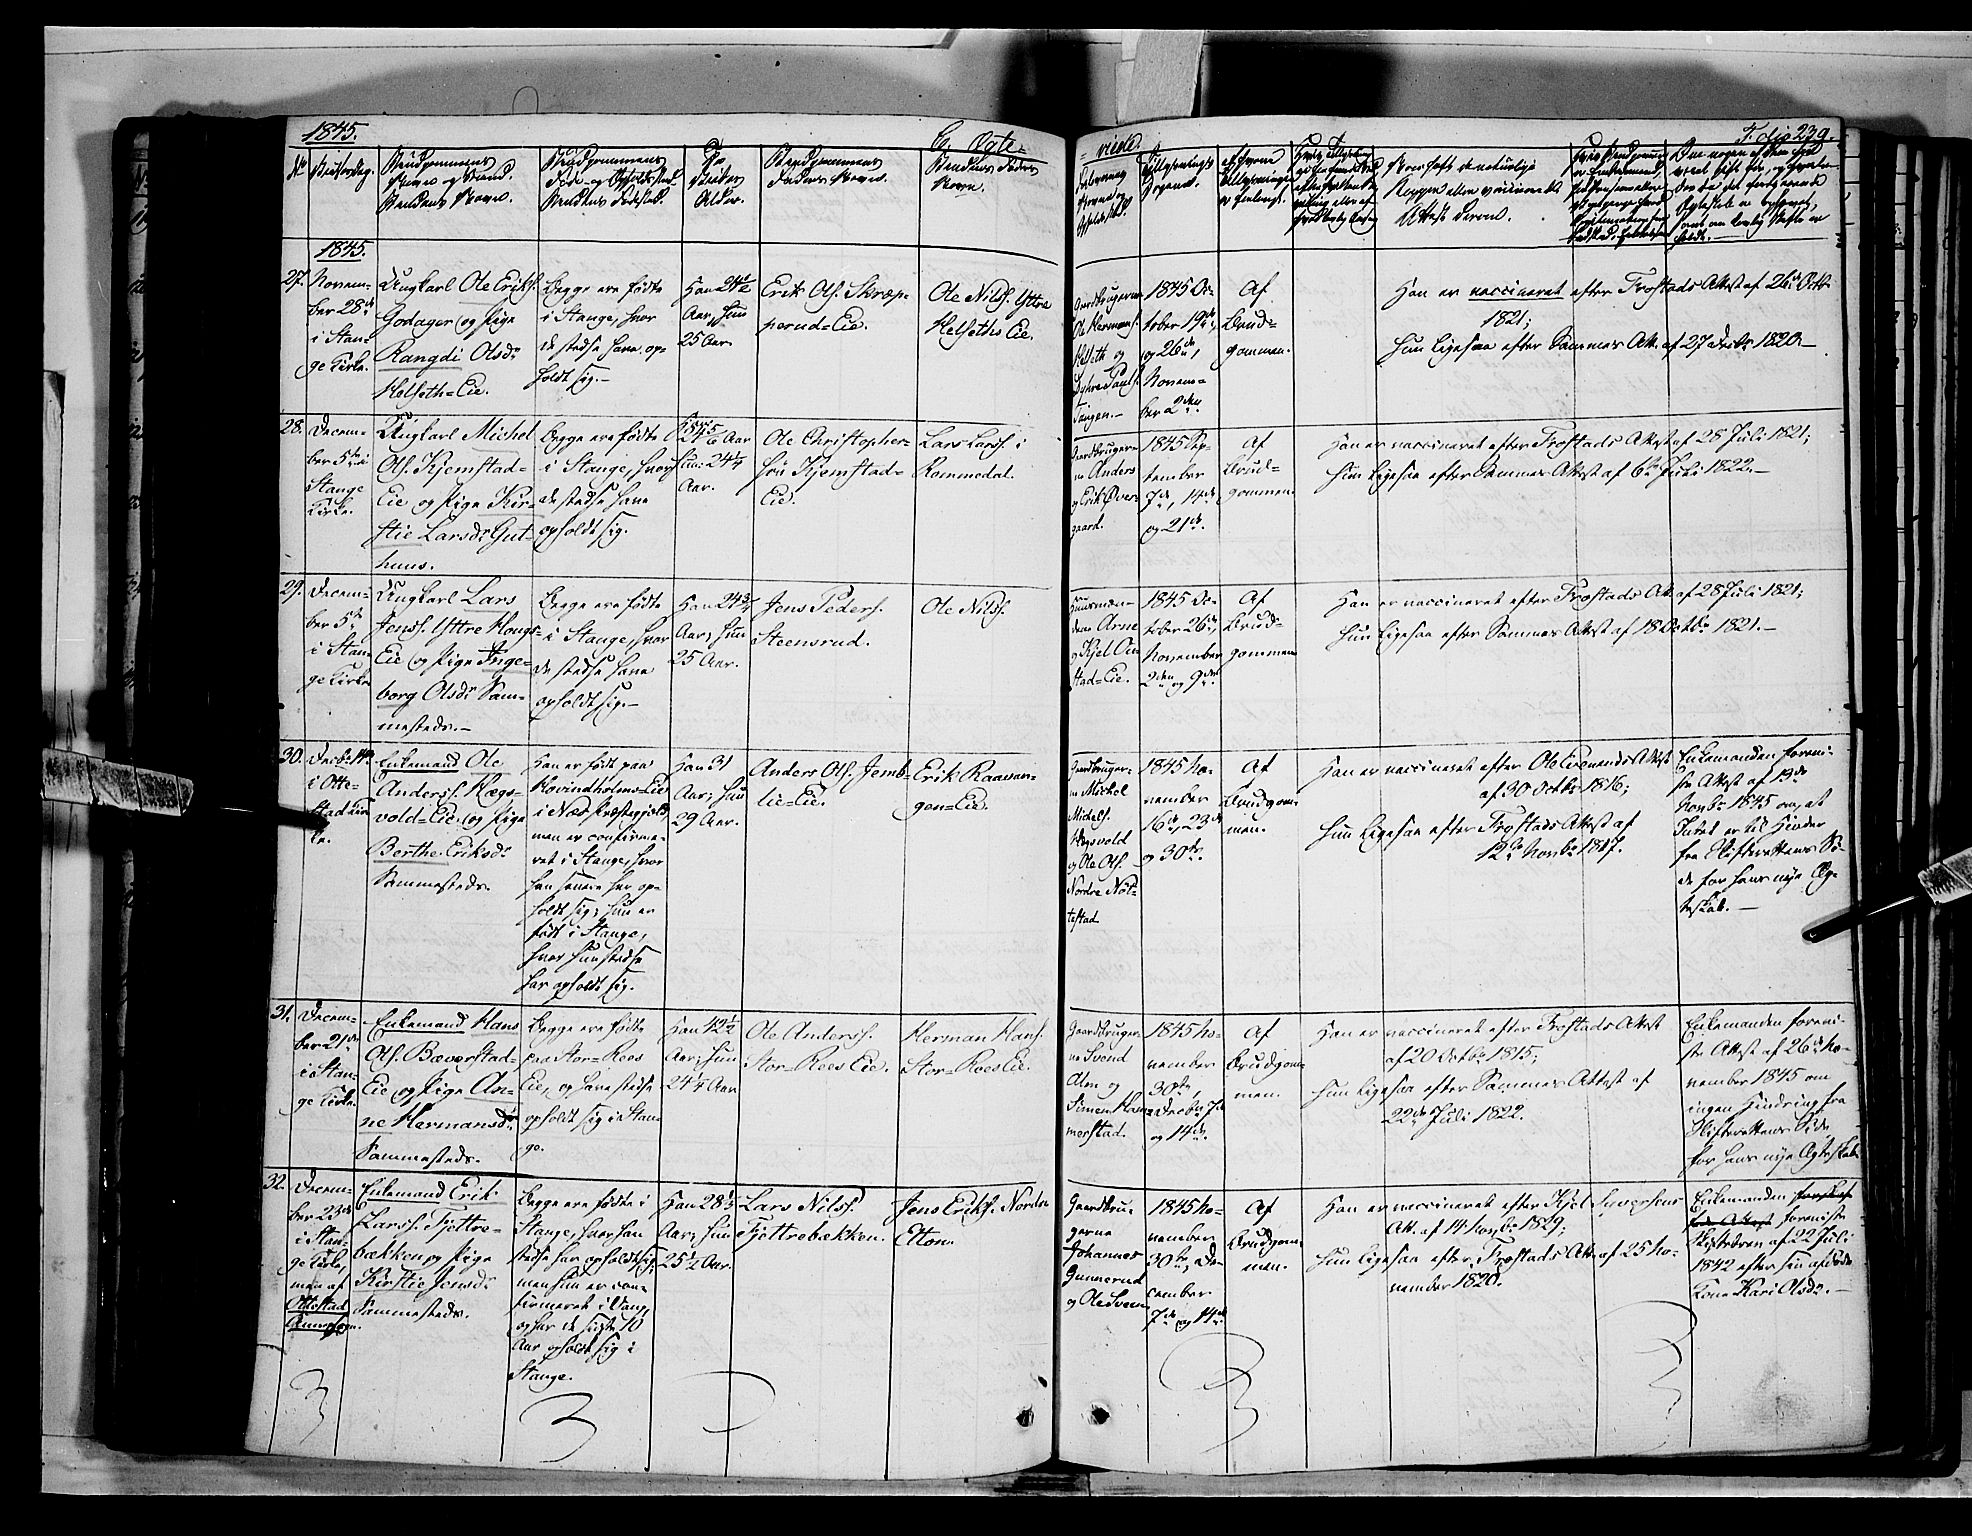 1845.
C. Ægte-
-viede.
Folio 239.
No
Vielsesdag.
Brudgommens
Navn og Stand.
Brudens Navn.
Brudgommens
Føde- og Opholdssted.
Brudens Fødested.
Brudgommens
Faders Navn.
Brudens Faders
Navn.
1845.
27.
Novem-
ber 28de
i Stan-
ge Kirke.
Ungkarl Ole Eriks.
Godager og Pige
Rangdi Olsd.
Helseth-Eie.
Begge ere fødte
i Stange, hvor
de stedse have op-
holdt sig.-
Han 24½
Aar, hun
25 Aar.
Erik Ols. Skræp-
perud-Eie.
Ole Nils. Yttre
Helseths Eie.
Gaardbrugerne
Ole Hermans.
Helseth og
Pauls.
Tangen.-
1845 Oc-
tober 19de,
og 26de,
Novem-
ber 2den.
Af
Brud-
gommen.
Han er vaccineret efter Frostads Attest af 26de Octb.
1821;
Hun ligesaa efter Sammes Att. af 27 Decbr 1820.-
28.
Decem-
ber 5te i
Stange
Kirke.
Ungkarl Michel
Ols. Kjemstad-
Eie og Pige Kir-
stie Larsd. Gut-
huus.
Begge ere fødte
i Stange, hvor
de stedse have
opholdt sig.
Aar
Hun 24¼
Aar.
Ole Christopher-
sen Kjemstad-
Eie.
Lars Lars. i
Rommedal.
Gaardbruger-
ne Anders
og Erik Øver-
gaard.
1845 Sep-
tember
7de, 14de
og 21de.
Af
Brud-
gommen.
Han er vaccineret efter Frostads Attest af 28 Juli 1821;
Hun ligesaa efter Sammes Attest af 6te Juli 1822.-
29.
Decem-
ber 5te
i Stan-
ge Kirke.
Ungkarl Lars
Jens. Yttre Houg-
Eie og Pige Inge-
borg Olsd. Sam-
mesteds.-
Begge ere fødte
i Stange, hvor
de stedse have
opholdt sig.-
Han 24¾
Aar; hun
25 Aar.
Jens Peders.
Steensrud.
Ole Nils.
Huusmæn-
dene Arne
og Kjel Oin-
stad-Eie.
1845 Oc-
tober 26de,
November
2den og 9de.
Af
Brud-
gommen
Han er vaccineret efter Frostads Att. af 28 Juli 1821;
Hun ligesaa efter Sammes Attest af 18 Octbr 1821.-
30.
Decbr 14de
i Otte-
stad Kir-
ke.
Enkemand Ole
Anders. Hægs-
vold-Eie og Pige
Berthe Eriksd.
Sammesteds.
Han er født paa
Hovindholms-Eie
i Næs Præstegjeld,
men er confirme-
ret i Stange, hvor
han senere har op-
holdt sig; hun er
født i Stange,
hvor hun stedse
har opholdt sig.
Han 31
Aar; hun
29 Aar.
Anders Ols. Jemb-
lie-Eie.
Erik Raavan-
gen-Eie.
Gaardbruger-
ne Michel
Michels.
Hægsvold
og Ole Ols.
Nordre Not-
testad
1845 No-
vember
16de, 23de
og 30te.
Af
Brudgom-
men.
Han er vaccineret efter Ole Evenruds Attest
af 30 Octbr 1816;
Hun ligesaa efter Frostads Attest af
12te Novbr 1817.
Enkemanden forevi-
ste Attest af 13de
Novbr 1845 om, at
Intet er til Hinder
fra Skifterettens Si-
de for hans nye Æg-
teskab.-
31.
Decem-
ber 21de
i Stan-
ge Kirke.
Enkemand Hans
Ols. Bæverstad-
Eie og Pige An-
ne Hermansd.
Sammesteds.
Begge ere fødte
paa Stor-Rees
Eie, og have stedse
opholdt sig i Stan-
ge.
Han 42½
Aar; hun
24¼ Aar
Ole Anders.
Stor-Rees Eie.
Herman Hans.
Stor-Rees Eie.
Gaardbruger-
ne Svend
Alm og
Simen Ham-
merstad.
1845 No-
vember
30te,
Decbr 7de
og 14de.
Af
Brudgom-
men.
Han er vaccineret efter Frostads Attest
af 20 Octbr 1815;
Hun ligesaa efter Sammes Attest af
22de Juli 1822.
Enkemanden forevi-
ste Attest af 26de No-
vember 1845 om
ingen Hindring fra
Skifterettens Side
for hans nye Ægteskab.
32.
Decem-
ber 23de
i Stan-
ge Kirke,
men af
Ottestad
Enkemand Erik
Lars. Fjettre-
bækken og Pige
Kirstie Jensd.
Sammesteds.
Begge ere fødte i
Stange, hvor han
stedse har opholdt sig,
men hun er con-
firmeret i Vang,
og har de sidste 10
Aar opholdt sig i
Stange.
Han 28½
Aar; hun
25½ Aar.
Lars Nils.
Fjettrebækken.
Jens Eriks. Nordre
Elton.
Gaardbru-
gerne
Johannes
Gunnerud
og Ole Sveen
1845 No-
vember
30te, De-
cember
7de og 14de
Af
Brudgom-
men.
Han er vaccineret efter Kjel Sjugersens
Att. af 14 Novbr 1829;
Hun ligesaa efter Frostads Att. af 25 No-
vember 1820.
Enkemanden
foreviste
Skiftebrev af 22 Juli
1842 efter sin afdøde
Kone Kari Olsd.-